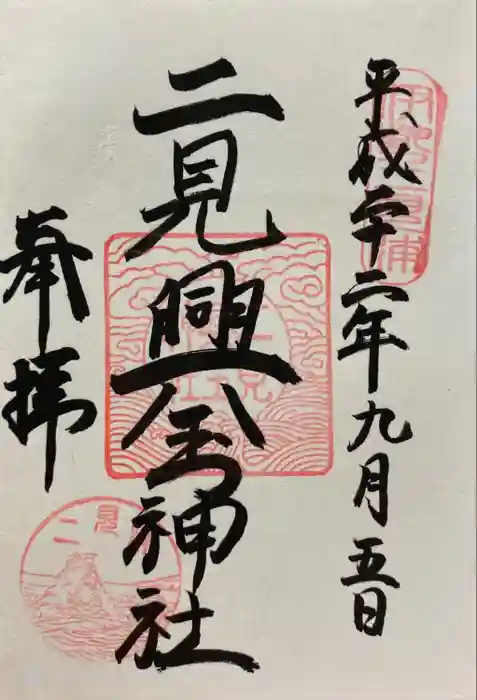 伊勢二見浦
平成二十二年九月五日
二見興玉神社
奉拝
二見